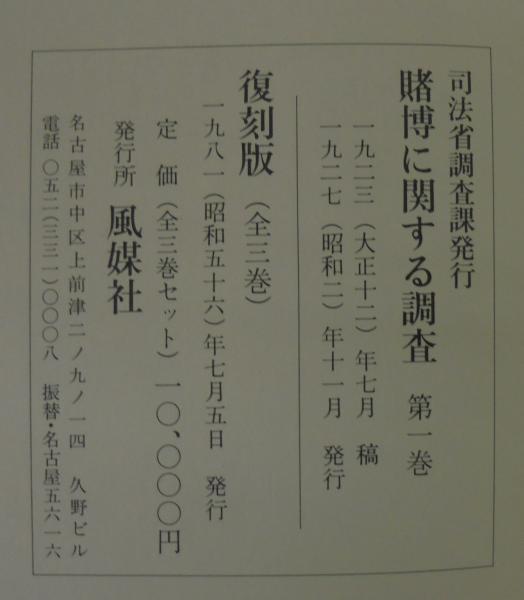 司法省調査課発行
賭博に関する調査 第一巻
一九二三(大正十二)年七月 稿
一九二七(昭和二)年十一月 発行
復刻版(全三巻)
一九八一(昭和五十六)年七月五日 発行
定価(全三巻セット)一〇、〇〇〇円
発行所 風媒社
名古屋市中区上前津二ノ九ノ一四 久野ビル
電話〇五二(三三一)〇〇〇八 振替・名古屋五六一六